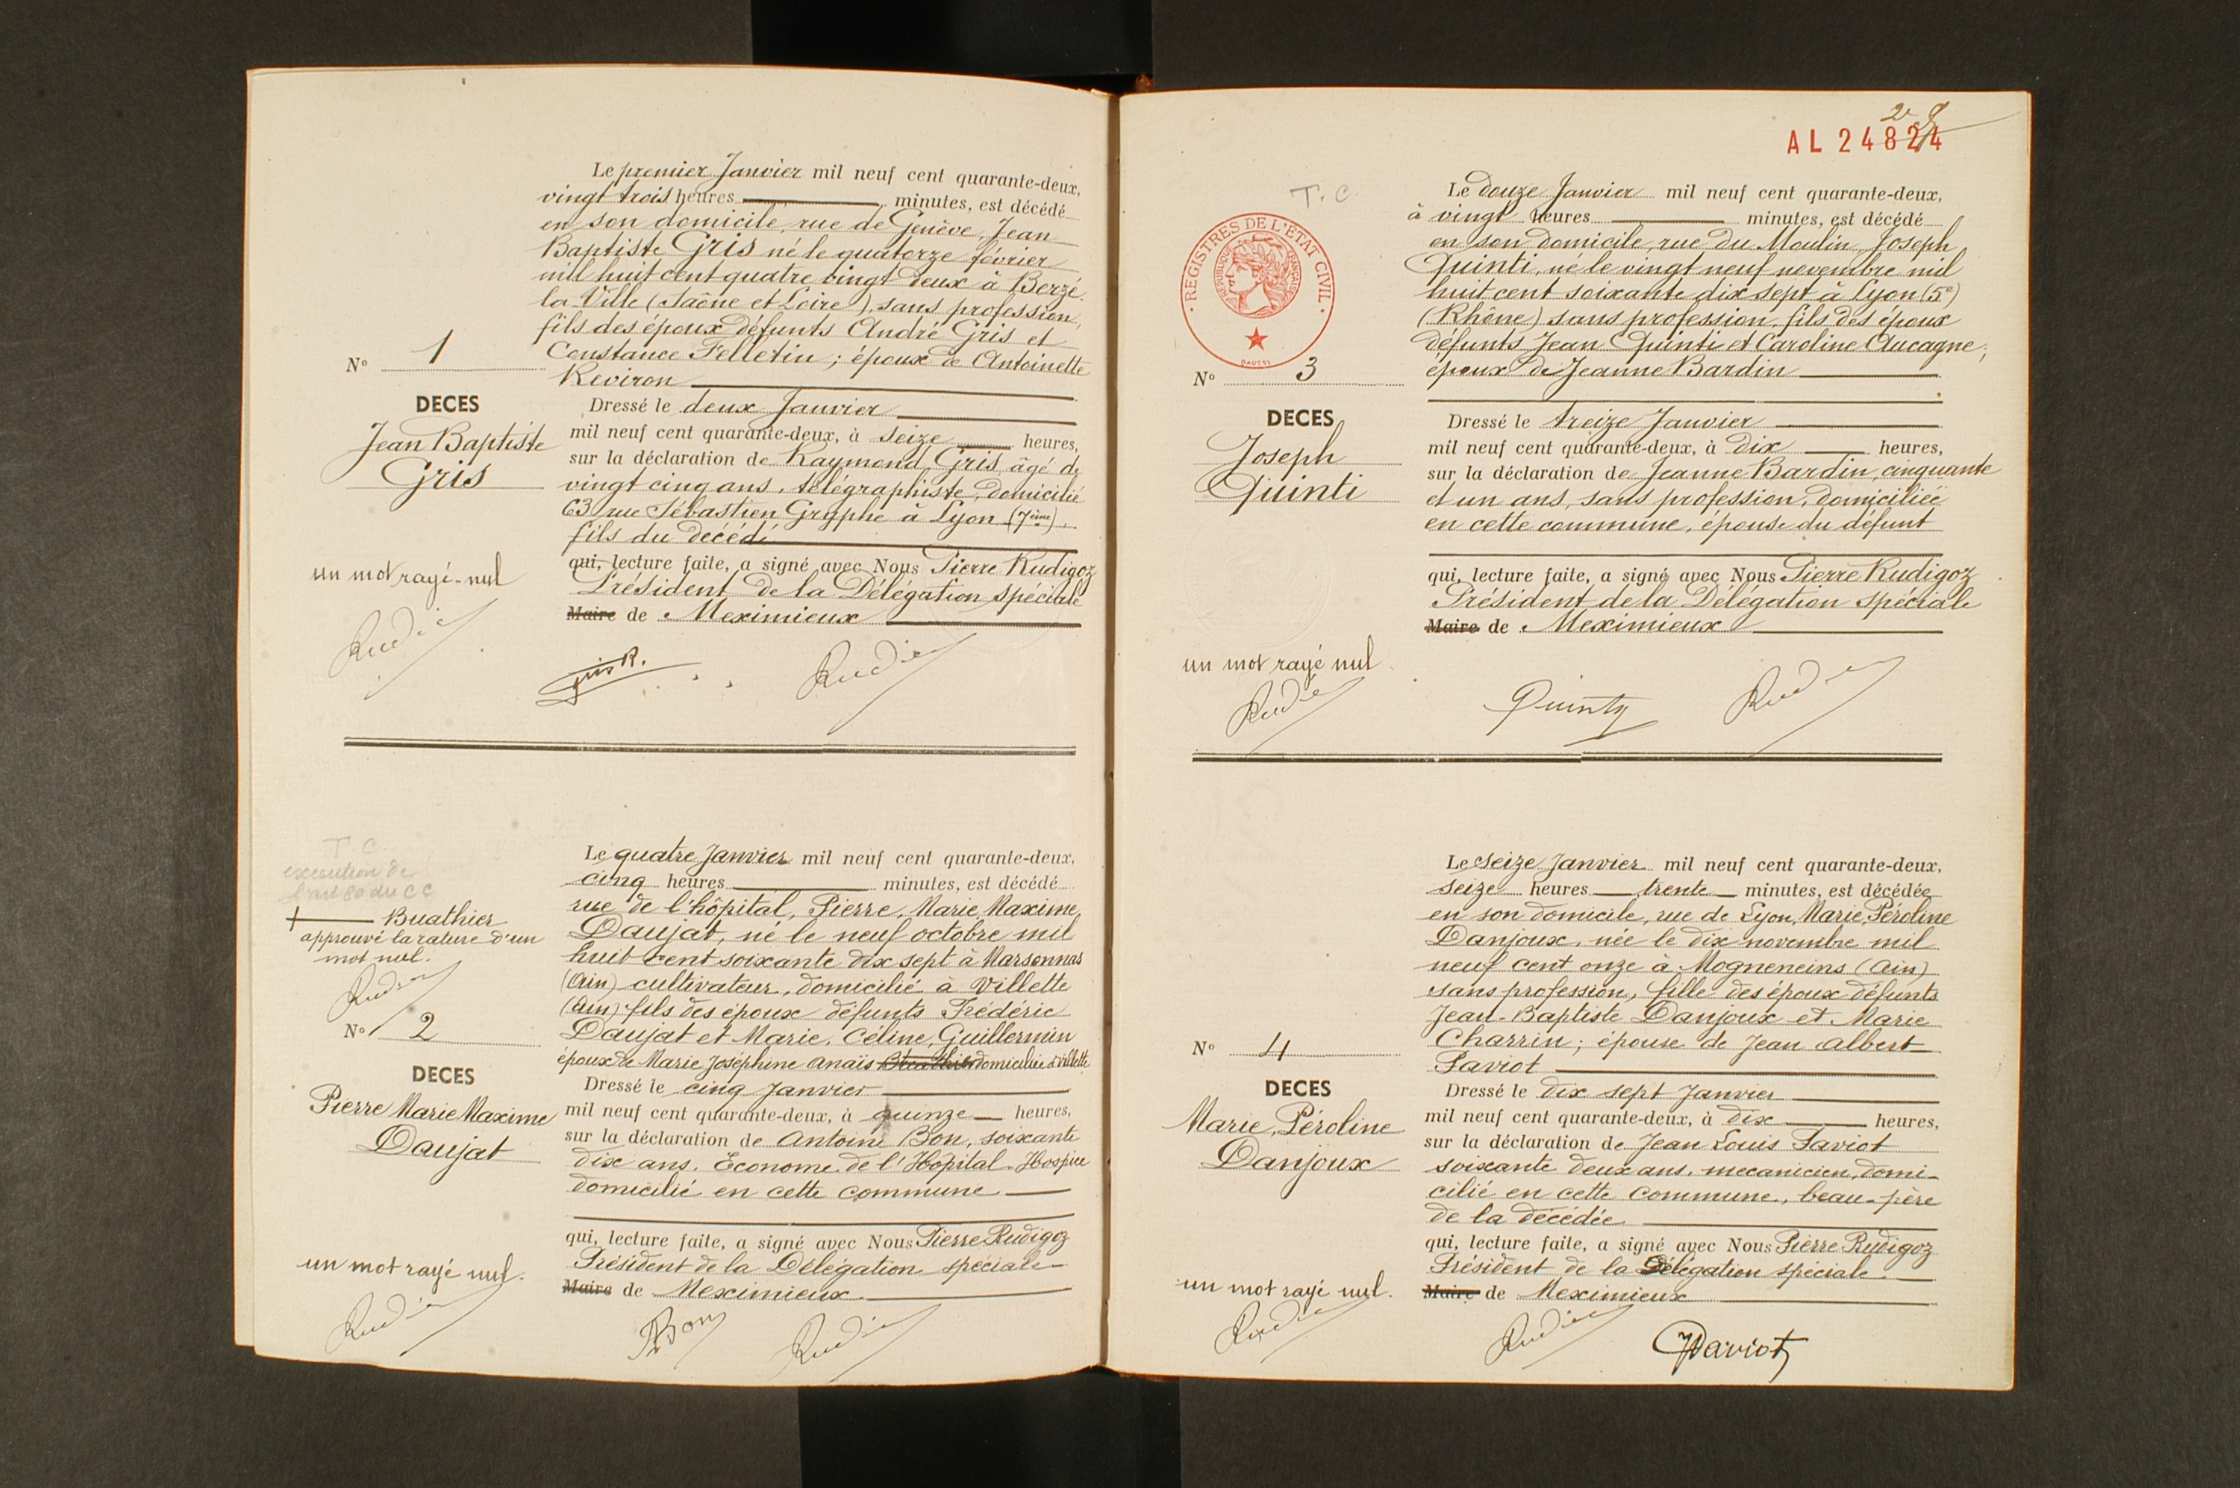 Le premier Janvier mil neuf cent quarante-deux,
vingt trois heures minutes, est décédé
en son domicile, rue de Genève, Jean
Baptiste Gris né le quatorze février
mil huit cent quatre vingt deux à Berzé-
la-Ville (Saône et Loire), sans profession,
fils des époux défunts André Gris et
Constance Felletin ; époux de Antoinette
Reviron
N° 1
DECES
Jean Baptiste
Gris
Dressé le deux Janvier
mil neuf cent quarante-deux, à seize heures,
sur la déclaration de Raymond Gris, âgé de
vingt cinq ans, télégraphiste, domicilié
63 rue Sébastien Gryphe à Lyon (7ème),
fils du décédé
qui, lecture faite, a signé avec Nous Pierre Rudigoz
Président de la Délégation spéciale
Maire de Meximieux
un mot rayé nul
Gris R.
T. C.
exécution de
l'art 80 du C C
Buathier
approuvé la rature d'un
mot nul.
Le quatre Janvier mil neuf cent quarante-deux,
cinq heures minutes, est décédé
rue de l'hôpital, Pierre, Marie, Maxime
Daujat, né le neuf octobre mil
huit cent soixante dix sept à Marsonnas
(Ain) cultivateur, domicilié à Villette
(Ain) fils des époux défunts Frédéric
Daujat et Marie, Céline, Guillermin
époux de Marie Joséphine Anaïs domiciliée à Villette
N° 2
DECES
Pierre Marie Maxime
Daujat
Dressé le cinq Janvier
mil neuf cent quarante-deux, à quinze heures,
sur la déclaration de Antoine Bon, soixante
dix ans, Econome de l'Hôpital-Hospice
domicilié en cette commune
qui, lecture faite, a signé avec Nous Pierre Rudigoz
Président de la Délégation spéciale
Maire de Meximieux
un mot rayé nul.
ABon
2
AL 24824
T. C.
REGISTRES DE L'ETAT CIVIL
REPUBLIQUE FRANÇAISE
Le douze Janvier mil neuf cent quarante-deux,
à vingt heures minutes, est décédé
en son domicile, rue du Moulin, Joseph
Quinti, né le vingt neuf novembre mil
huit cent soixante dix sept à Lyon (5e)
(Rhône) sans profession, fils des époux
défunts Jean Quinti et Caroline Aucagne ;
époux de Jeanne Bardin
N° 3
DECES
Joseph
Quinti
Dressé le treize Janvier
mil neuf cent quarante-deux, à dix heures,
sur la déclaration de Jeanne Bardin, cinquante
et un ans, sans profession, domiciliée
en cette commune, épouse du défunt
qui, lecture faite, a signé avec Nous Pierre Rudigoz
Président de la Délégation spéciale
Maire de Meximieux
un mot rayé nul.
Quinty
Le seize Janvier mil neuf cent quarante-deux,
seize heures trente minutes, est décédée
en son domicile, rue de Lyon, Marie, Péroline
Danjoux, née le dix novembre mil
neuf cent onze à Mogneneins (Ain)
sans profession, fille des époux défunts
Jean-Baptiste Danjoux et Marie
Charrin ; épouse de Jean Albert
Paviot
N° 4
DECES
Marie, Péroline
Danjoux
Dressé le dix sept Janvier
mil neuf cent quarante-deux, à dix heures,
sur la déclaration de Jean Louis Paviot
soixante deux ans, mecanicien, domi-
cilié en cette commune, beau-père
de la décédée
qui, lecture faite, a signé avec Nous Pierre Rudigoz
Président de la Délégation spéciale
Maire de Meximieux
un mot rayé nul.
JPaviot